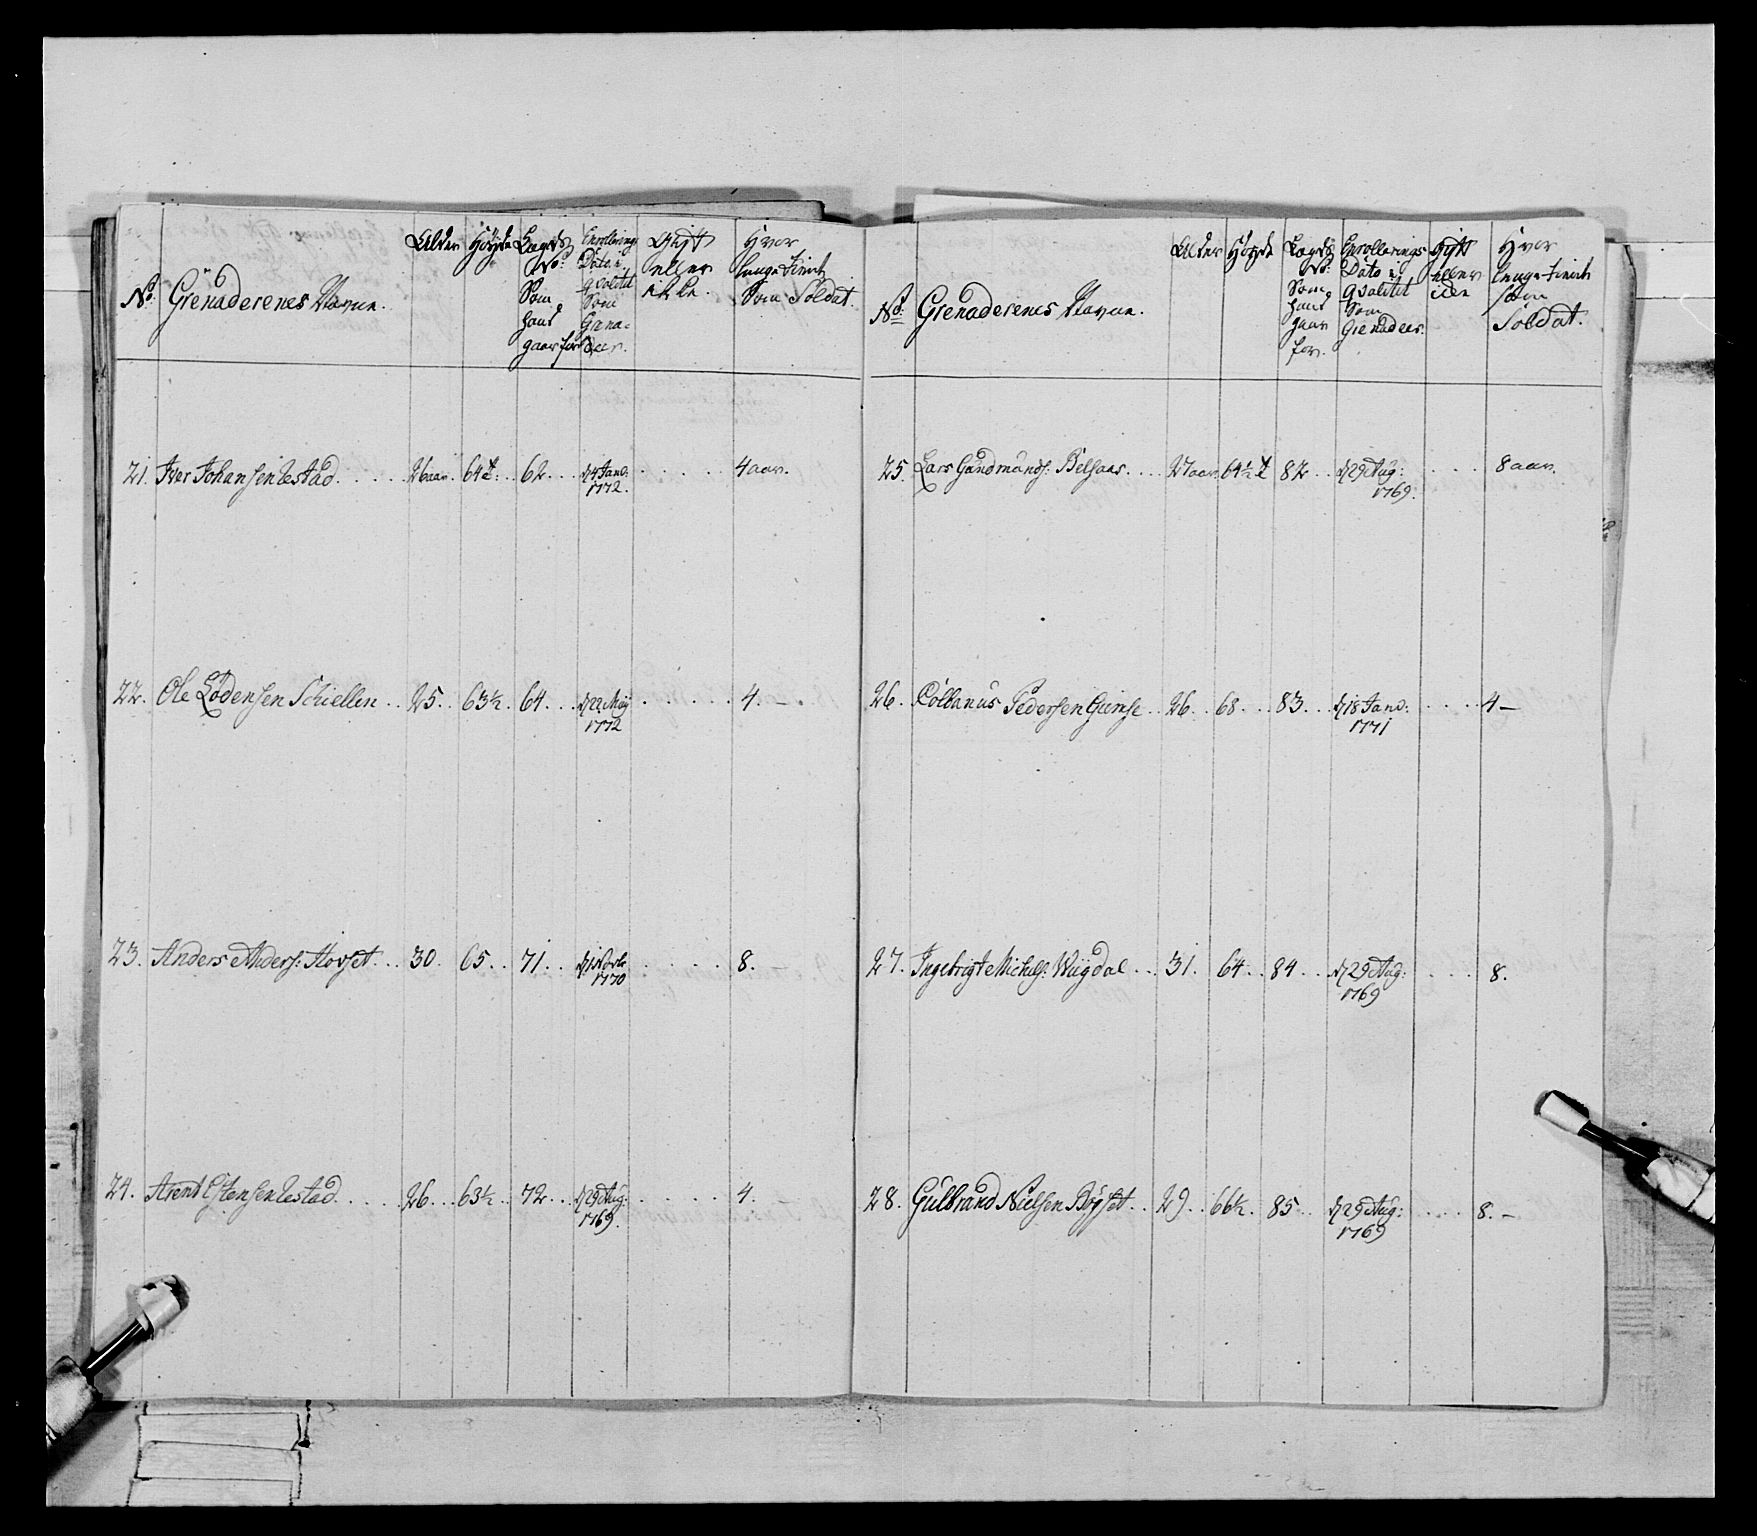 No: Grenaderenes Navne. Alder Höyde Lægds No: Som hand gaar for Enrollerings Dato i Qvalitet Som Grenadeer. Gift eller ikke. Hvor lenge tient Som Soldat.
21. Iver Johansen Lestad. 26 aar. 64 t: 62. d 4 Janv: 1772. 4 aar.
22. Ole Lodensen Schiellen 25. 63½ 64. d 22 Maij 1772 4. –
23. Anders Anders: Hovset. 30. 65. 71. d 1 Novbr 1770 8. –
24. Arent Estensen Lestad. 26. 63½ 72. d 29 Aug: 1769. 4. –
No: Grenaderenes Navne. Alder Höyde Lægds No: Som hand gaar for. Enrollerings Dato i Qvalitet Som Grenadeer. Gift eller ikke Hvor lenge tient som Soldat.
25. Lars Gundmunds: Belsaas. 27 aar 64½ t 82. d 29 Aug: 1769. 8 aar.
26. Colbanus Pedersen Gimse 26. 68. 83. d 18 Janv: 1771 4 –
27. Ingebrigt Michels: Wiigdal 31. 64. 84. d 29 Aug: 1769 8.
28. Gulbrand Nielsen Böyset. 29. 66½. 85. d 29 Aug: 1769 8. –